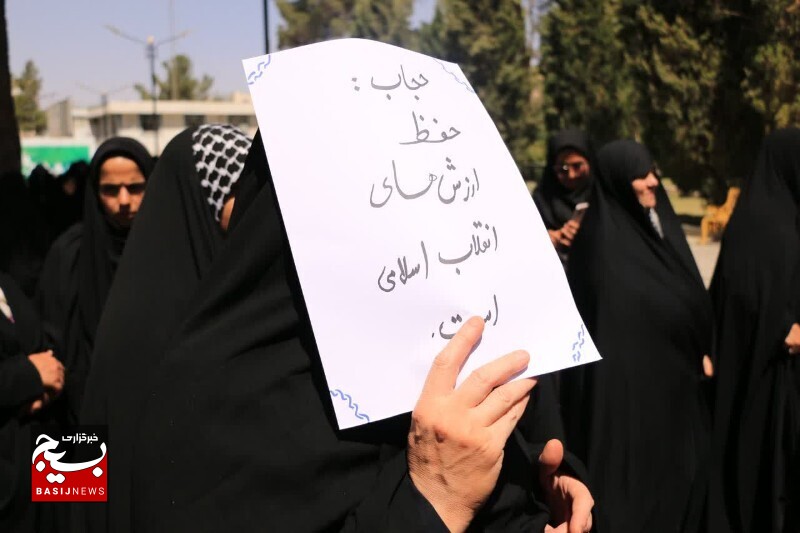 حجاب :
حفظ
ارزش‌های
انقلاب اسلامی
است.
خبرگزاری
بسیج
BASIJNEWS